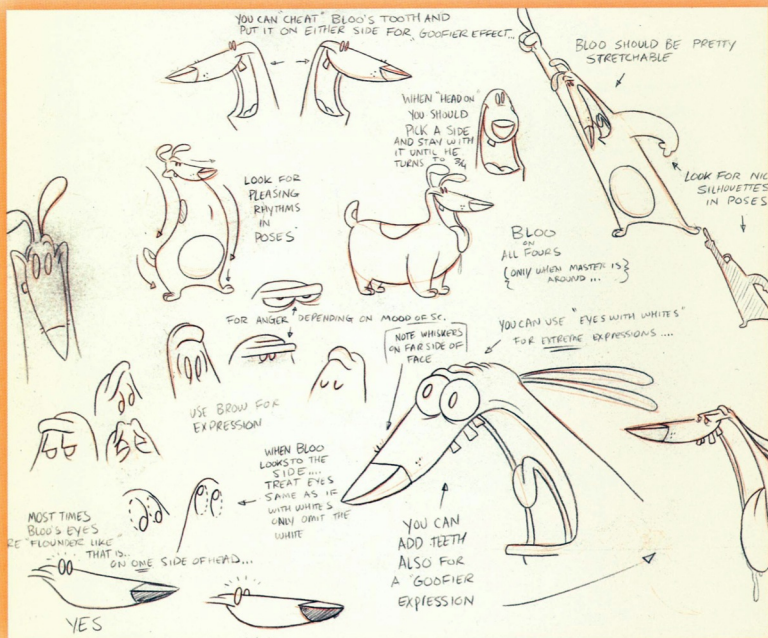 YOU CAN "CHEAT" BLOO'S TOOTH AND
PUT IT ON EITHER SIDE FOR "GOOFIER EFFECT...
BLOO SHOULD BE PRETTY
STRETCHABLE
WHEN "HEAD ON"
YOU SHOULD
PICK A SIDE
AND STAY WITH
IT UNTIL HE
TURNS TO 3/4
LOOK FOR
PLEASING
RHYTHMS
IN
POSES"
LOOK FOR NIC
SILHOUETTES
IN POSES
BLOO
ON
ALL FOURS
{ONLY WHEN MASTER IS
AROUND...}
FOR ANGER DEPENDING ON MOOD OF SC.
NOTE WHISKERS
ON FAR SIDE OF
FACE
YOU CAN USE "EYES WITH WHITES"
FOR EXTREME EXPRESSIONS....
USE BROW FOR
EXPRESSION
WHEN BLOO
LOOKS TO THE
SIDE....
TREAT EYES
SAME AS IF
WITH WHITES
ONLY OMIT THE
WHITE
MOST TIMES
BLOO'S EYES
RE "FLOUNDER LIKE"
THAT IS..
ON ONE SIDE OF HEAD...
YOU CAN
ADD TEETH
ALSO FOR
A "GOOFIER
EXPRESSION
YES